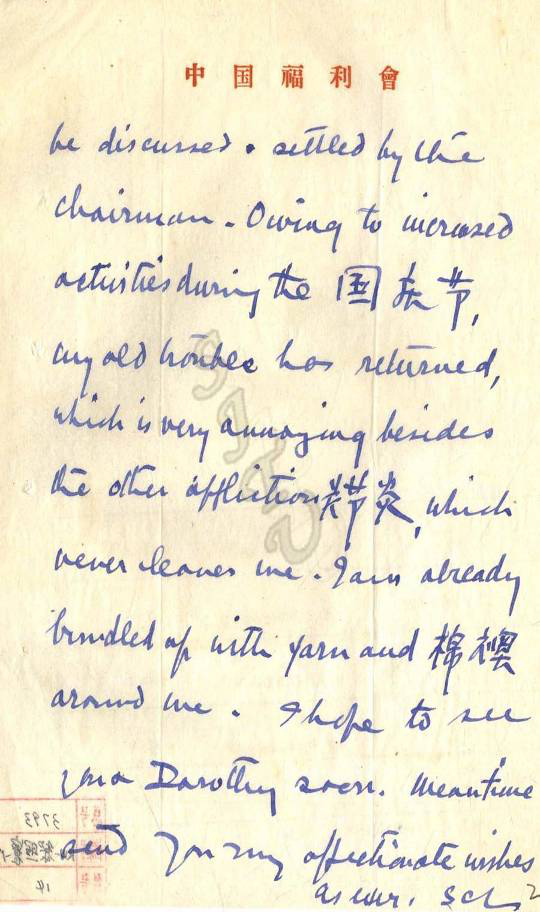 中国福利會
be discussed & settled by the
chairman. Owing to increased
activities during the 国庆节,
my old trouble has returned,
which is very annoying besides
the other affliction 关节炎, which
never leaves me. I am already
bundled up with yarn and 棉襖
around me. I hope to see
you & Dorothy soon. Meantime
send you my affectionate wishes
as ever. SCL
3793
14